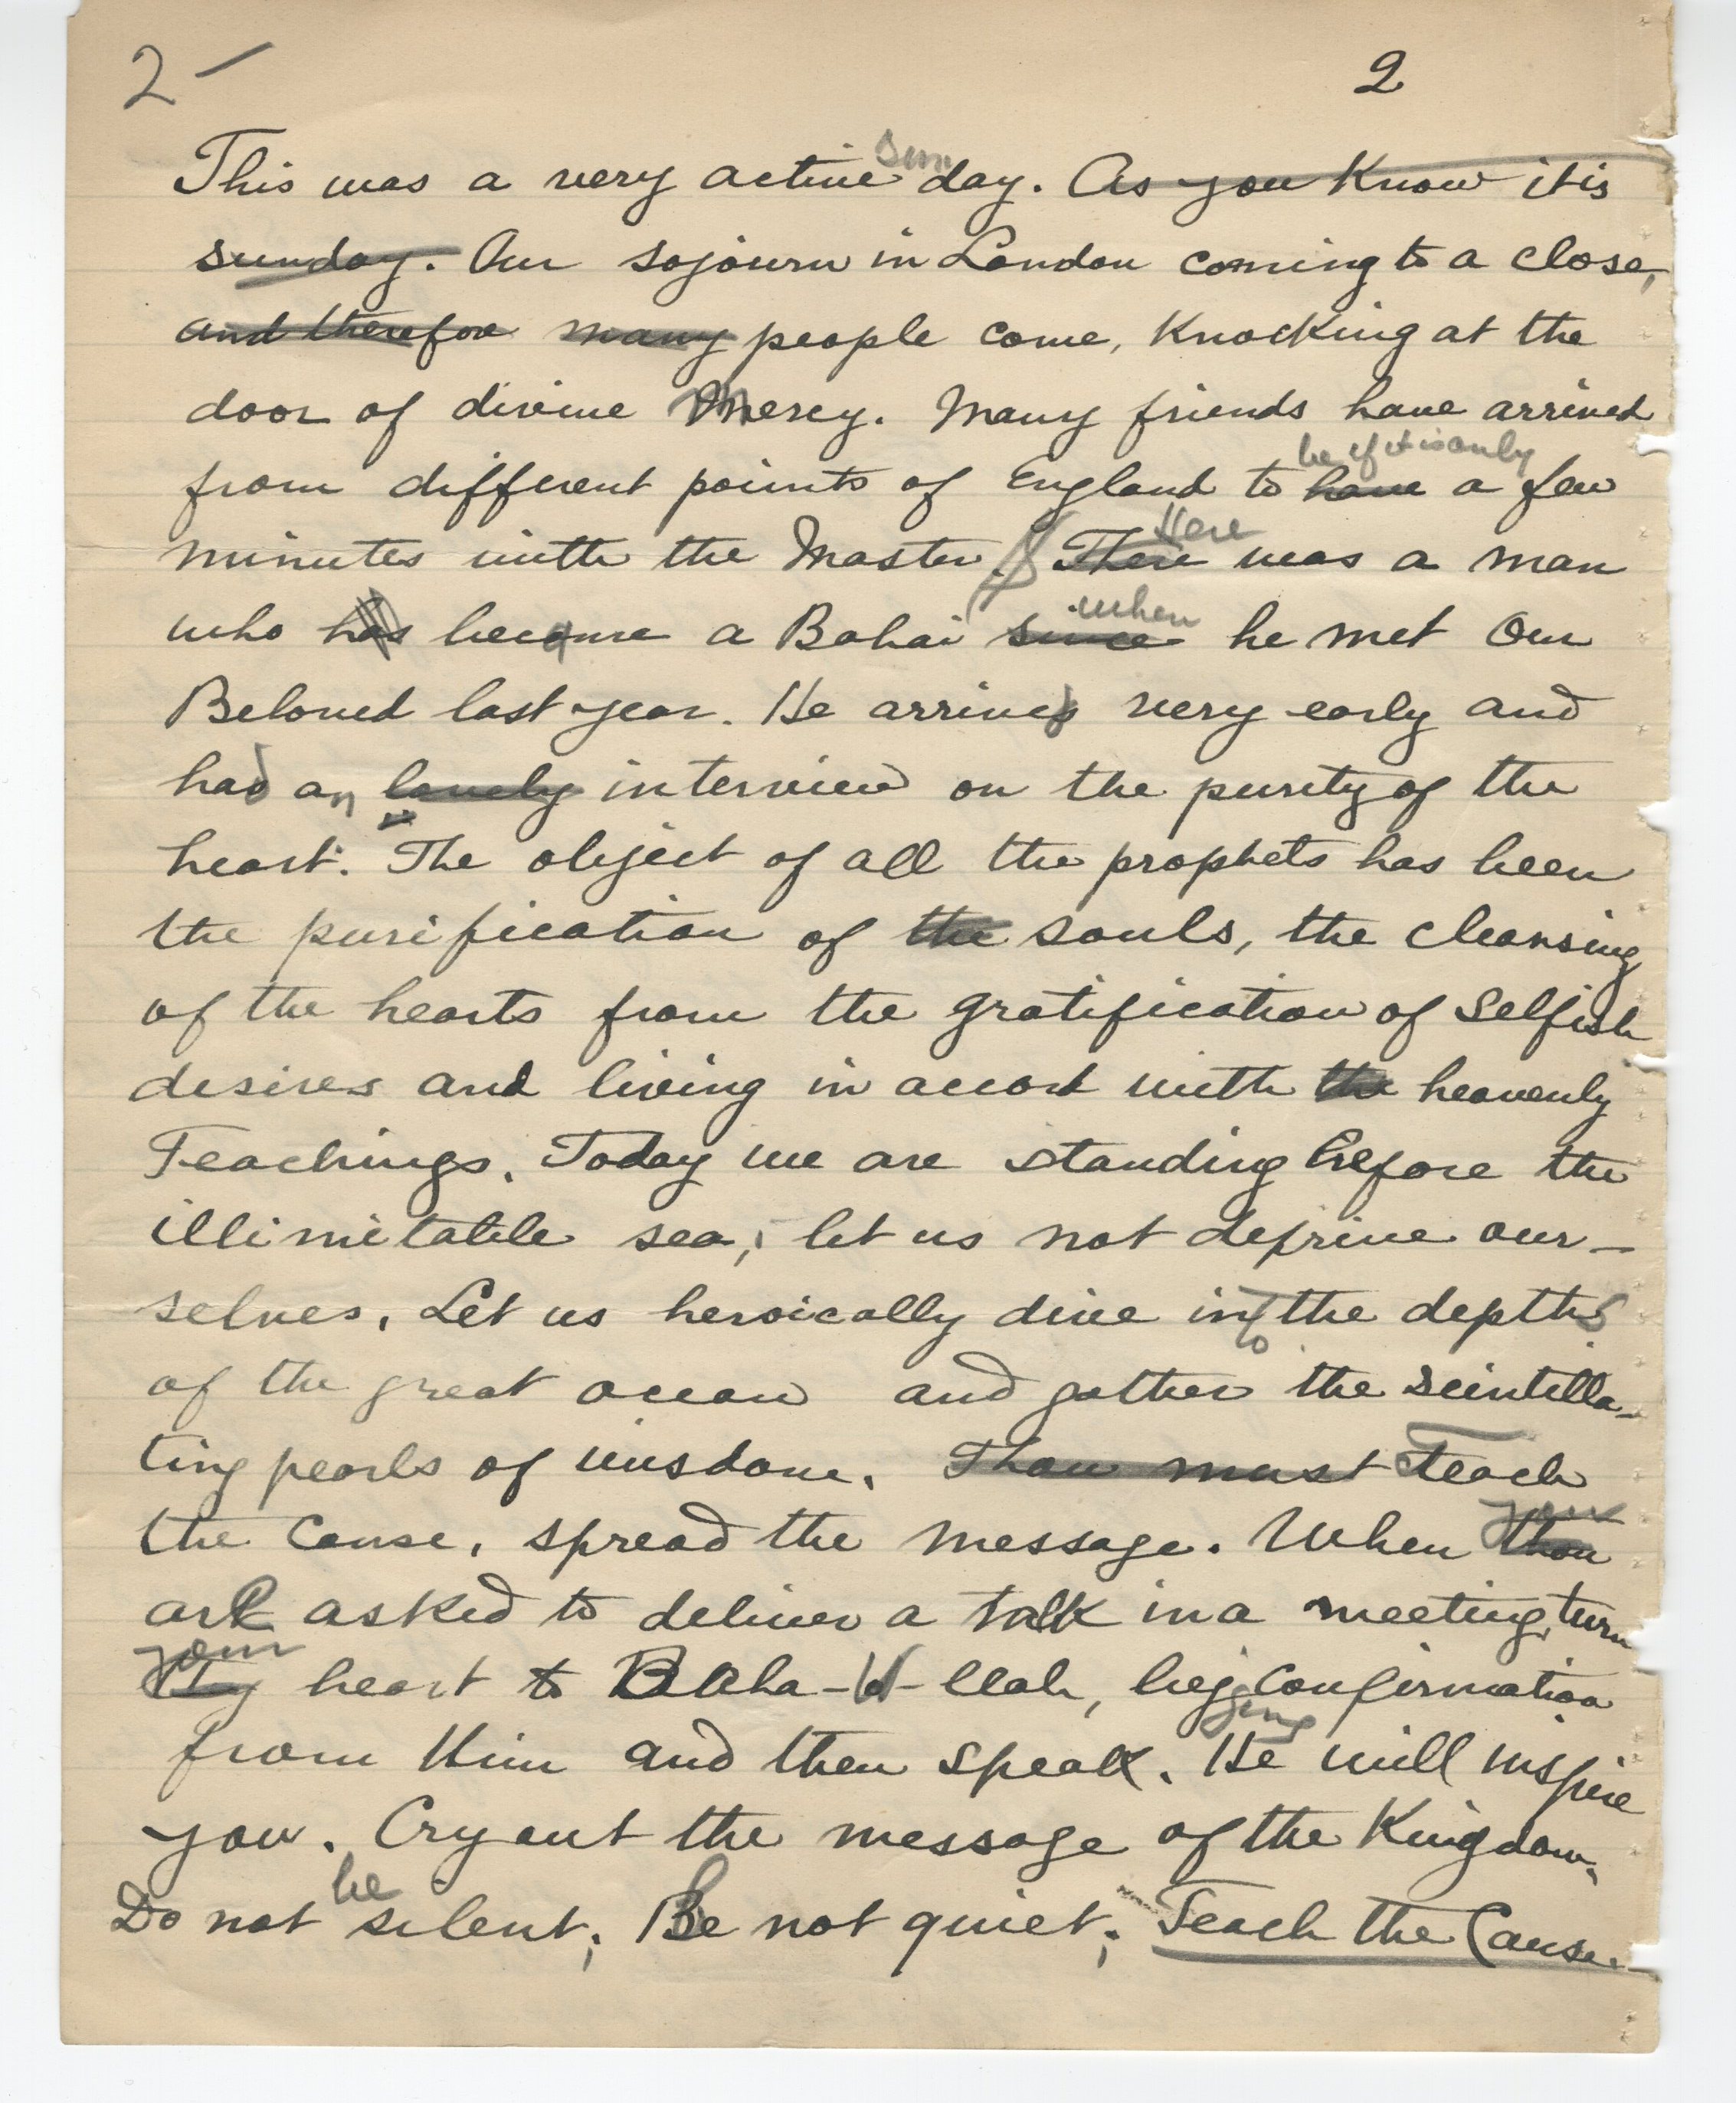 2 – 2
This was a very active Sunday. As you Know it is
sunday. Our sojourn in London coming to a close,
and therefore many people come, Knocking at the
door of divine Mercy. Many friends have arrived
be if it is only
from different points of England to have a few
Here
minutes with the Master. There was a man
when
who has became a Bahai since he met Our
Beloved last year. He arrived very early and
had an lovely interview on the purity of the
heart. The object of all the prophets has been
the purification of the souls, the cleansing
of the hearts from the gratification of Selfish
desires and living in accord with the heavenly
Teachings. Today we are standing before the
illimitable sea; let us not deprive our-
selves. Let us heroically dive into the depths
of the great ocean and gather the scintilla-
ting pearls of wisdom. Thou must Teach
the Cause, spread the message. When thou
you
are asked to deliver a talk in a meeting, turn
your
thy heart to Baha-U-llah, begging Confirmation
from Him and then speak. He will inspire
you. Cry out the message of the Kingdom.
be
Do not silent; Be not quiet; Teach the Cause.